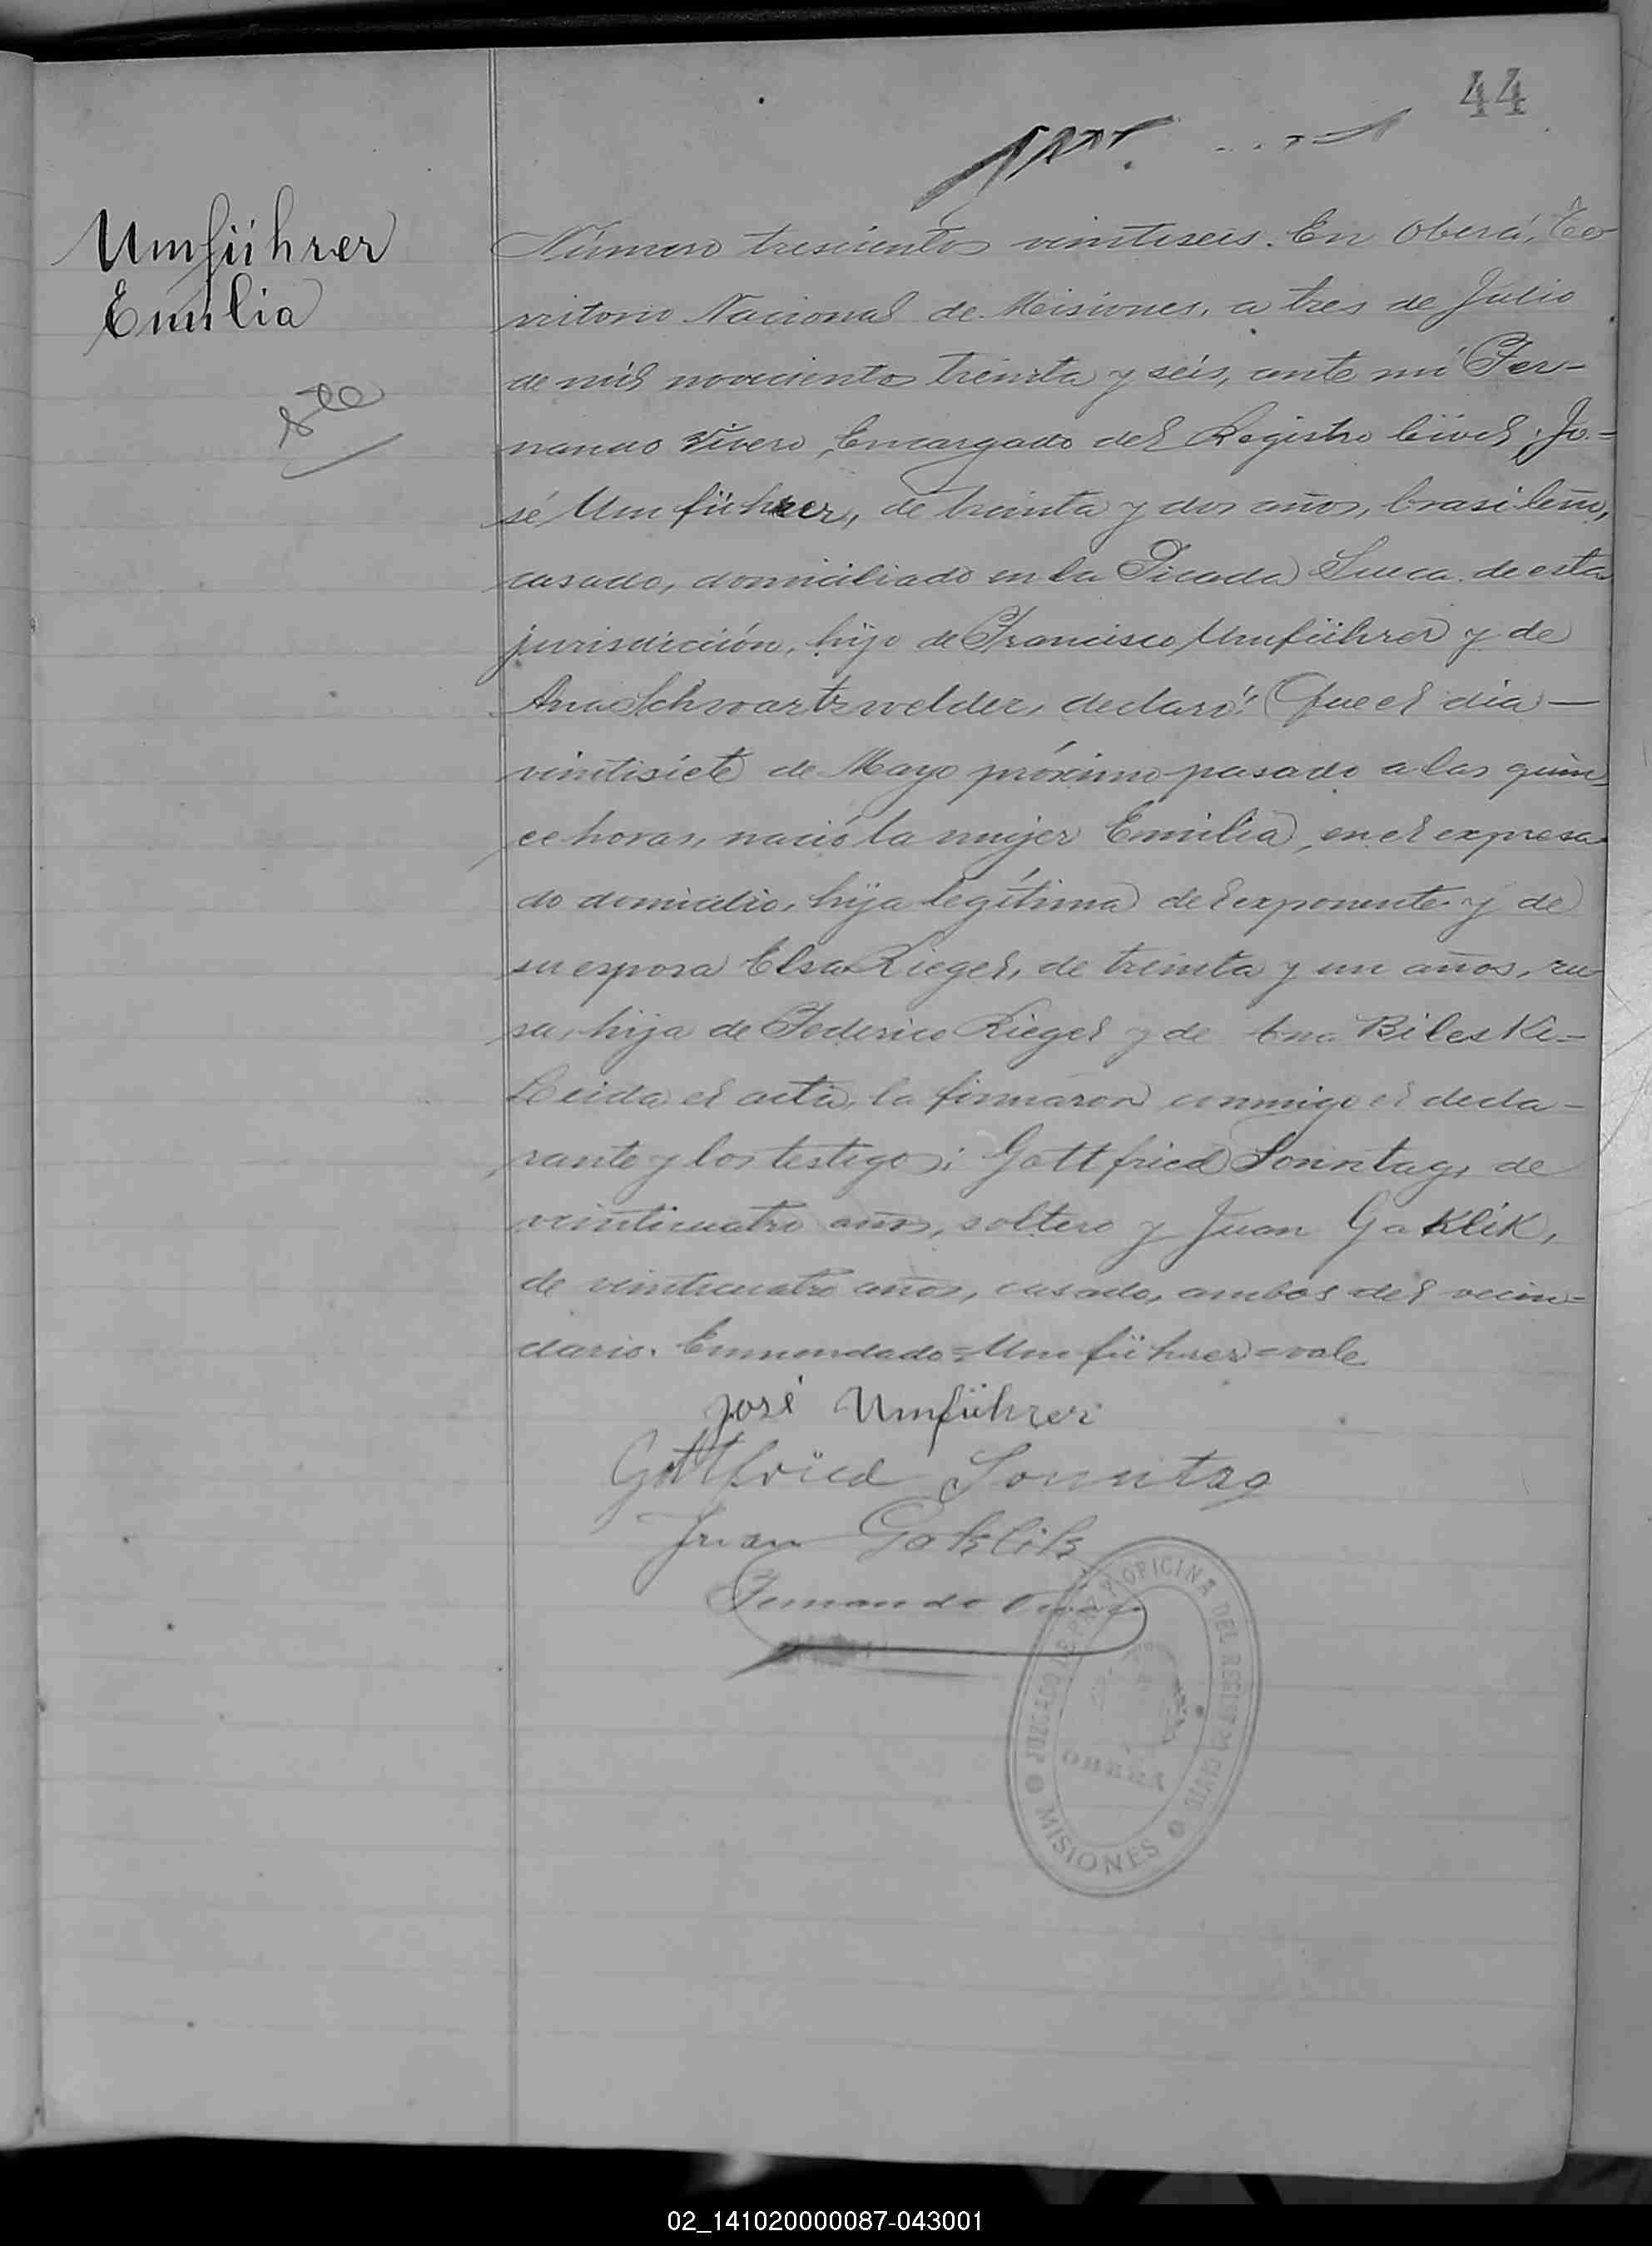 44
Umführer
Emilia
Número trescientos veintiseis. En Oberá, Te-
rritorio Nacional de Misiones, a tres de Julio
de mil novecientos treinta y seis, ante mí Fer-
nando Vivero, Encargado del Registro Civil, Jo-
sé Umführer, de treinta y dos años, brasileño,
casado, domiciliado en la Picada Sueca de esta
jurisdicción, hijo de Francisco Umführer y de
Ana Schwartzwelder, declaró: Que el día —
veintisiete de Mayo próximo pasado a las quin
ce horas, nació la mujer Emilia, en el expresa
do domicilio, hija legítima del exponente y de
su esposa Elsa Riegel, de treinta y un años, ru
sa, hija de Federico Riegel y de Ana Bileske-
Leida el acta, la firmaron conmigo el decla-
rante y los testigos: Gottfried Sonntag, de
veinticuatro años, soltero y Juan Gaklik,
de veinticuatro años, casado, ambos del vecin-
dario. Enmendado = Umführer = vale
José Umführer
Gottfried Sonntag
Juan Gaklik
Fernando
JUZGADO DE PAZ Y OFICINA DEL REGISTRO CIVIL
MISIONES
02_141020000087-043001